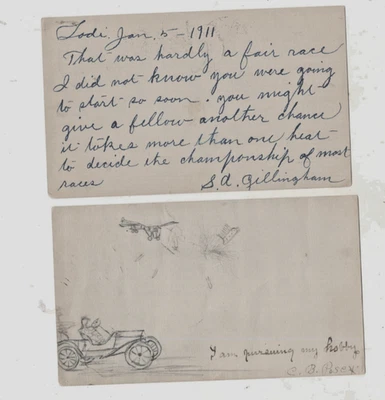 Lodi, Jan. 5 - 1911
That was hardly a fair race
I did not know you were going
to start so soon. you might
give a fellow another chance
it takes more than one heat
to decide the championship of most
races S. A. Gillingham
I am pursuing my hobby.
C. B.